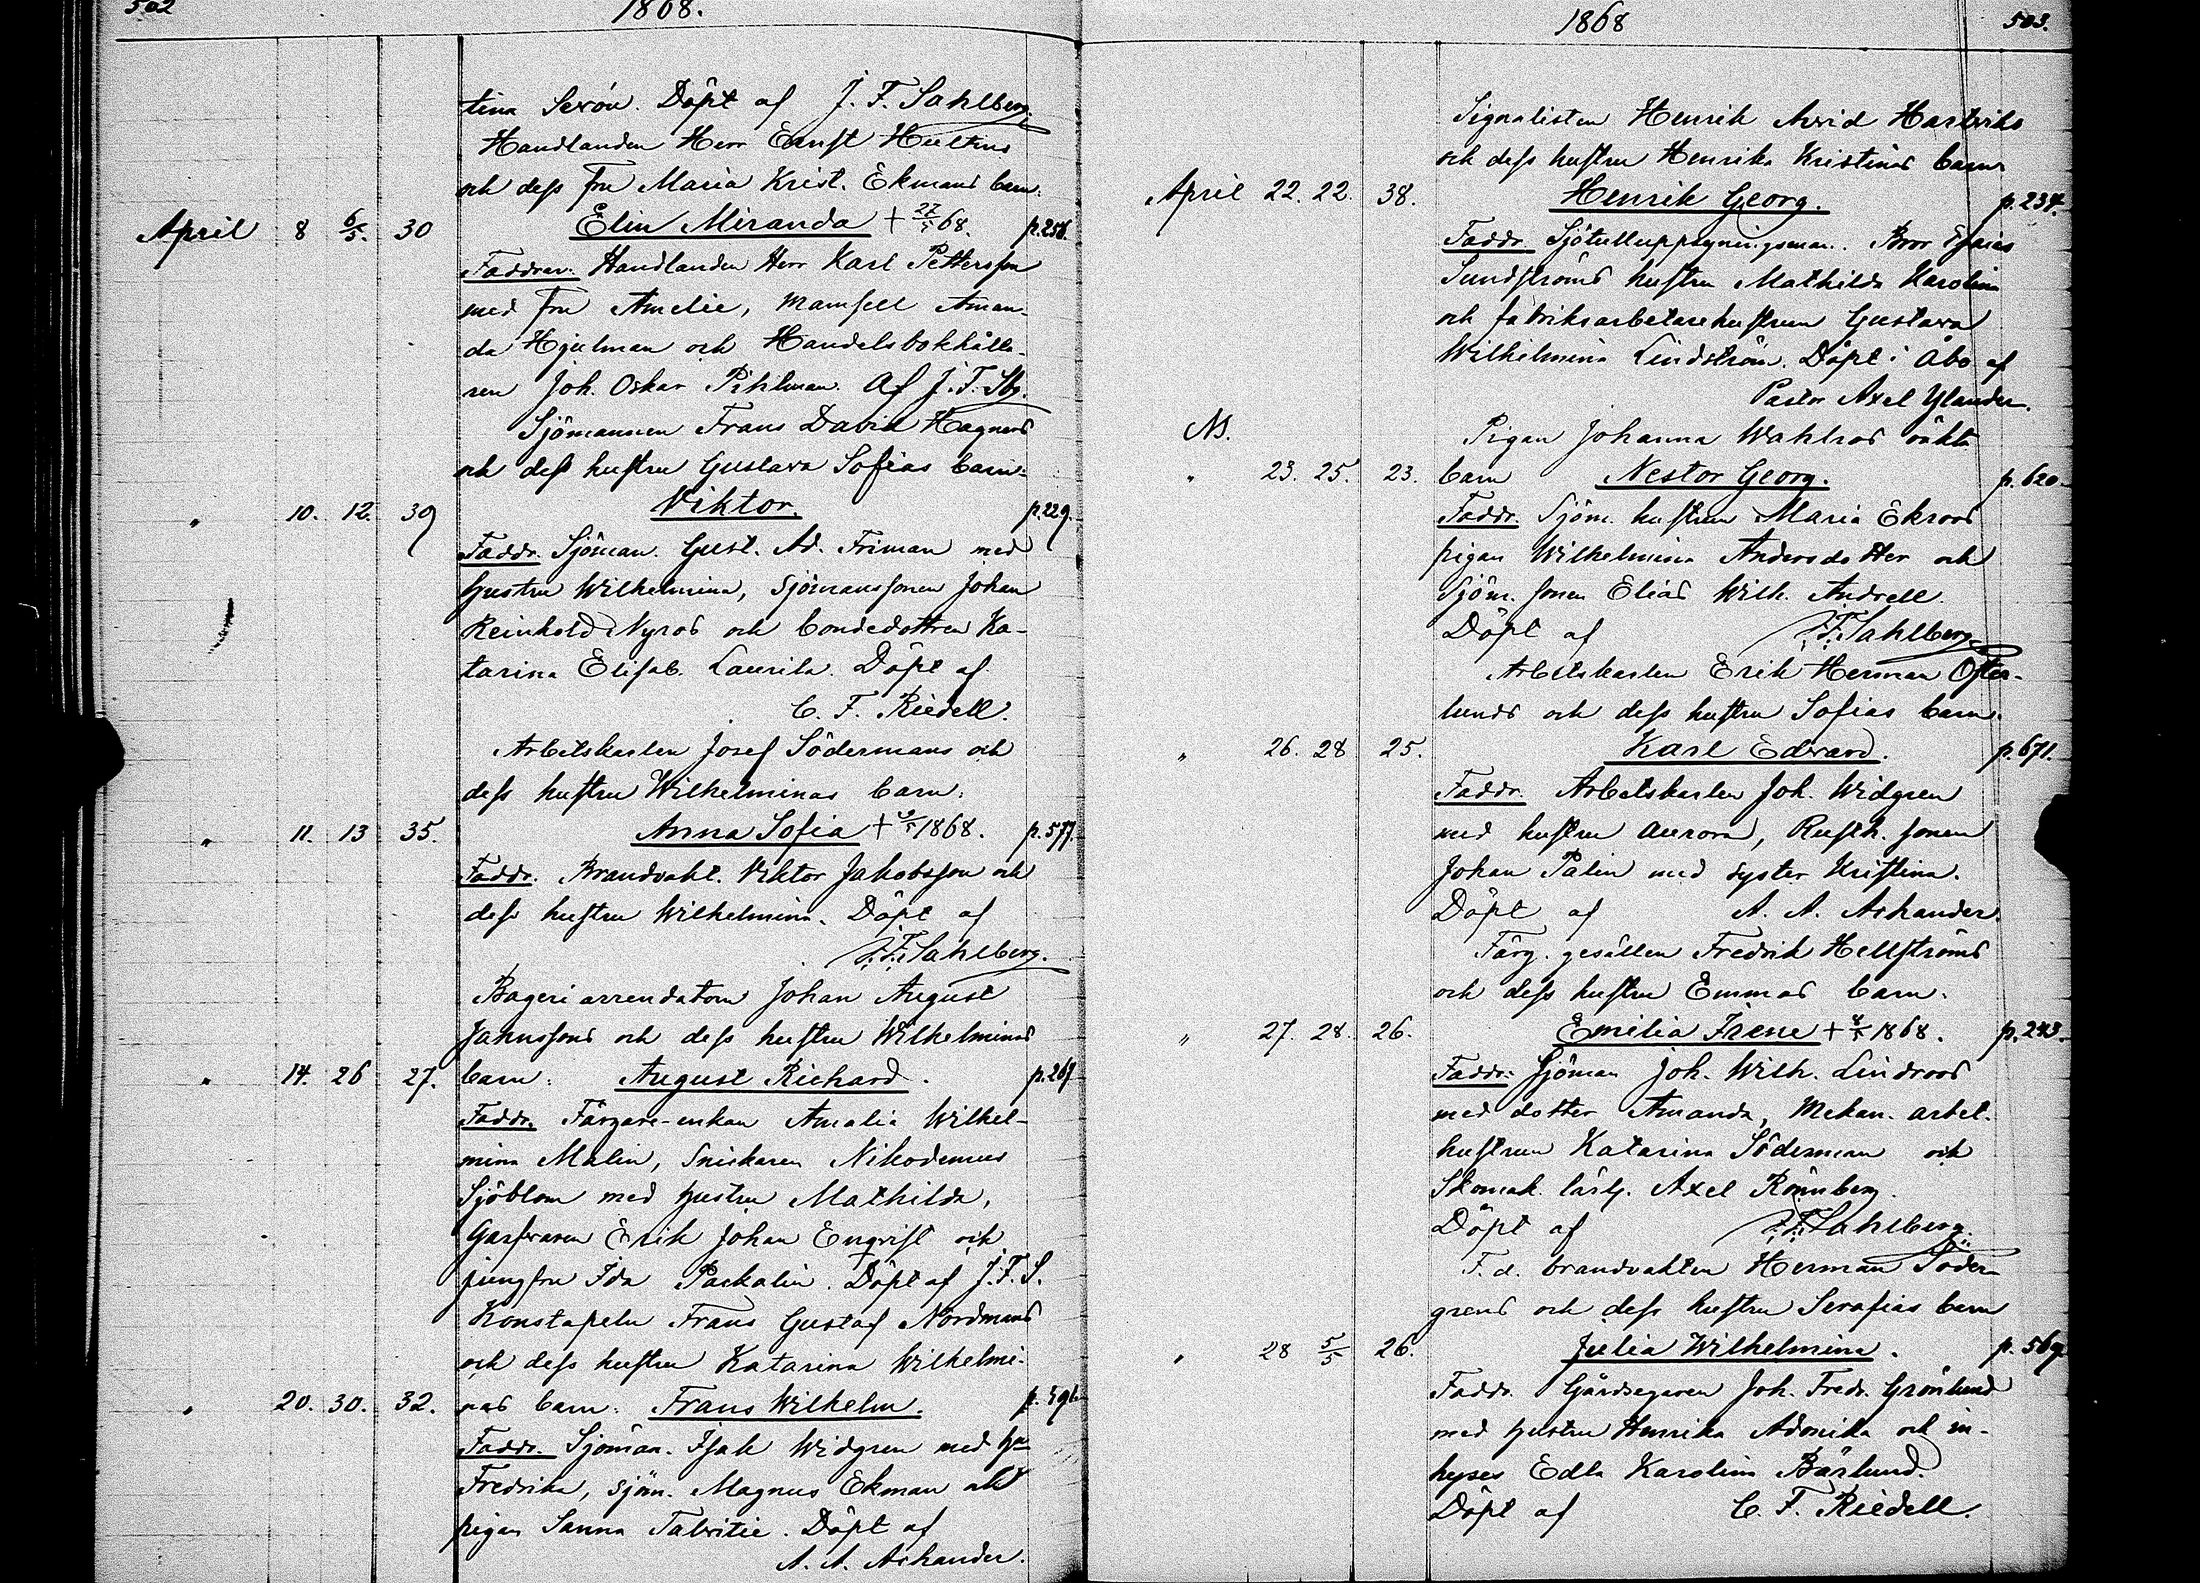 502
1868.
tina Serón. Döpt af J. F. Sahlberg.
Handlanden Herr Ernst Hultins
och dess fru Maria Krist. Ekmans barn:
April 8 6/5. 30 Elin Miranda + 27/5 68. p.258.
Faddrar: Handlanden Herr Karl Pettersson
med fru Amelie, Mamsell Aman-
da Hjulman och Handelsbokhålla-
ren Joh. Oskar Pihlman. Af J. F. Sbg.
Sjömannen Frans David Hagners
och dess hustru Gustava Sofias barn:
" 10. 12. 39 Viktor. p.229.
Faddr. Sjöman. Gust. Ad. Friman med
hustru Wilhelmina, Sjömanssonen Johan
Reinhold Nyros och bondedottren Ka-
tarina Elisab. Laurila. Döpt af
C. F. Riedell.
Arbetskarlen Josef Södermans och
dess hustru Wilhelminas barn:
" 11. 13 35. Anna Sofia + 1868. p.577.
Faddr. Brandvakt. Viktor Jakobsson och
dess hustru Wilhelmina. Döpt af
J. F. Sahlberg.
Bageri arrendatorn Johan August
Jahnssons och dess hustru Wilhelminas
" 14. 26 27. barn: August Richard. p.267
Faddr. Färgare-enkan Amalia Wilhel-
mina Malin, Snickaren Nikodemus
Sjöblom med hustru Mathilda,
Garfvaren Erik Johan Enqvist och
jungfru Ida Packalin. Döpt af J. F. S.
Konstapeln Frans Gustaf Nordmans
och dess hustru Katarina Wilhelmi-
" 20. 30. 32. nas barn: Frans Wilhelm.
Faddr. Sjöman. Isak Widgren med hu
Fredrika, Sjöm. Magnus Ekman och
pigan Sanna Tabritie. Döpt af
A. A. Ashander.
1868
503.
Signalisten Henrik Arvid Hartviks
och dess hustru Henrika Kristinas barn
April 22. 22. 38. Henrik Georg. p.234.
Faddr. Sjötulluppsyningsman. Bror Esaias
Sundströms hustru Mathilda Karolina
och fabriksarbetarehustrun Gustava
Wilhelmina Lindström. Döpt i Åbo af
Pastor Axel Ylander.
Pigan Johanna Wahlros oäkta
" 23. 25. 23. barn Nestor Georg. p.620.
Faddr. Sjöm. hustrun Maria Ekroos
pigan Wilhelmina Andersdotter och
Sjöm. sonen Elias Wilh. Andrell.
Döpt af J. F. Sahlberg
Arbetskarlen Erik Herman Öster-
lunds och dess hustru Sofias barn.
" 26. 28 25. Karl Edvard. p.671.
Faddr. Arbetskarlen Joh. Widgren
med hustru Aurora, Rusth. sonen
Johan Palin med syster Kristina.
Döpt af A. A. Ashander.
Färg. gesällen Fredrik Hellströms
och dess hustru Emmas barn.
" 27. 28. 26. Emilia Irene + 8/5 1868. p.243.
Faddr. Sjöman Joh. Wilh. Lindroos
med dotter Amanda, Mekan. arbet.
hustrun Katarina Söderman och
Skomak. lärlj. Axel Rönnberg.
Döpt af J. F. Sahlberg.
F. d. brandvakten Herman Söder-
grens och dess hustru Serafias barn
" 28 5/5 26. Julia Wilhelmina. p.569
Faddr. Gårdsegaren Joh. Fredr. Grönlund
med hustru Henrika Adonika och in-
hyses Edla Karolina Bärlund.
Döpt af C. F. Riedell.